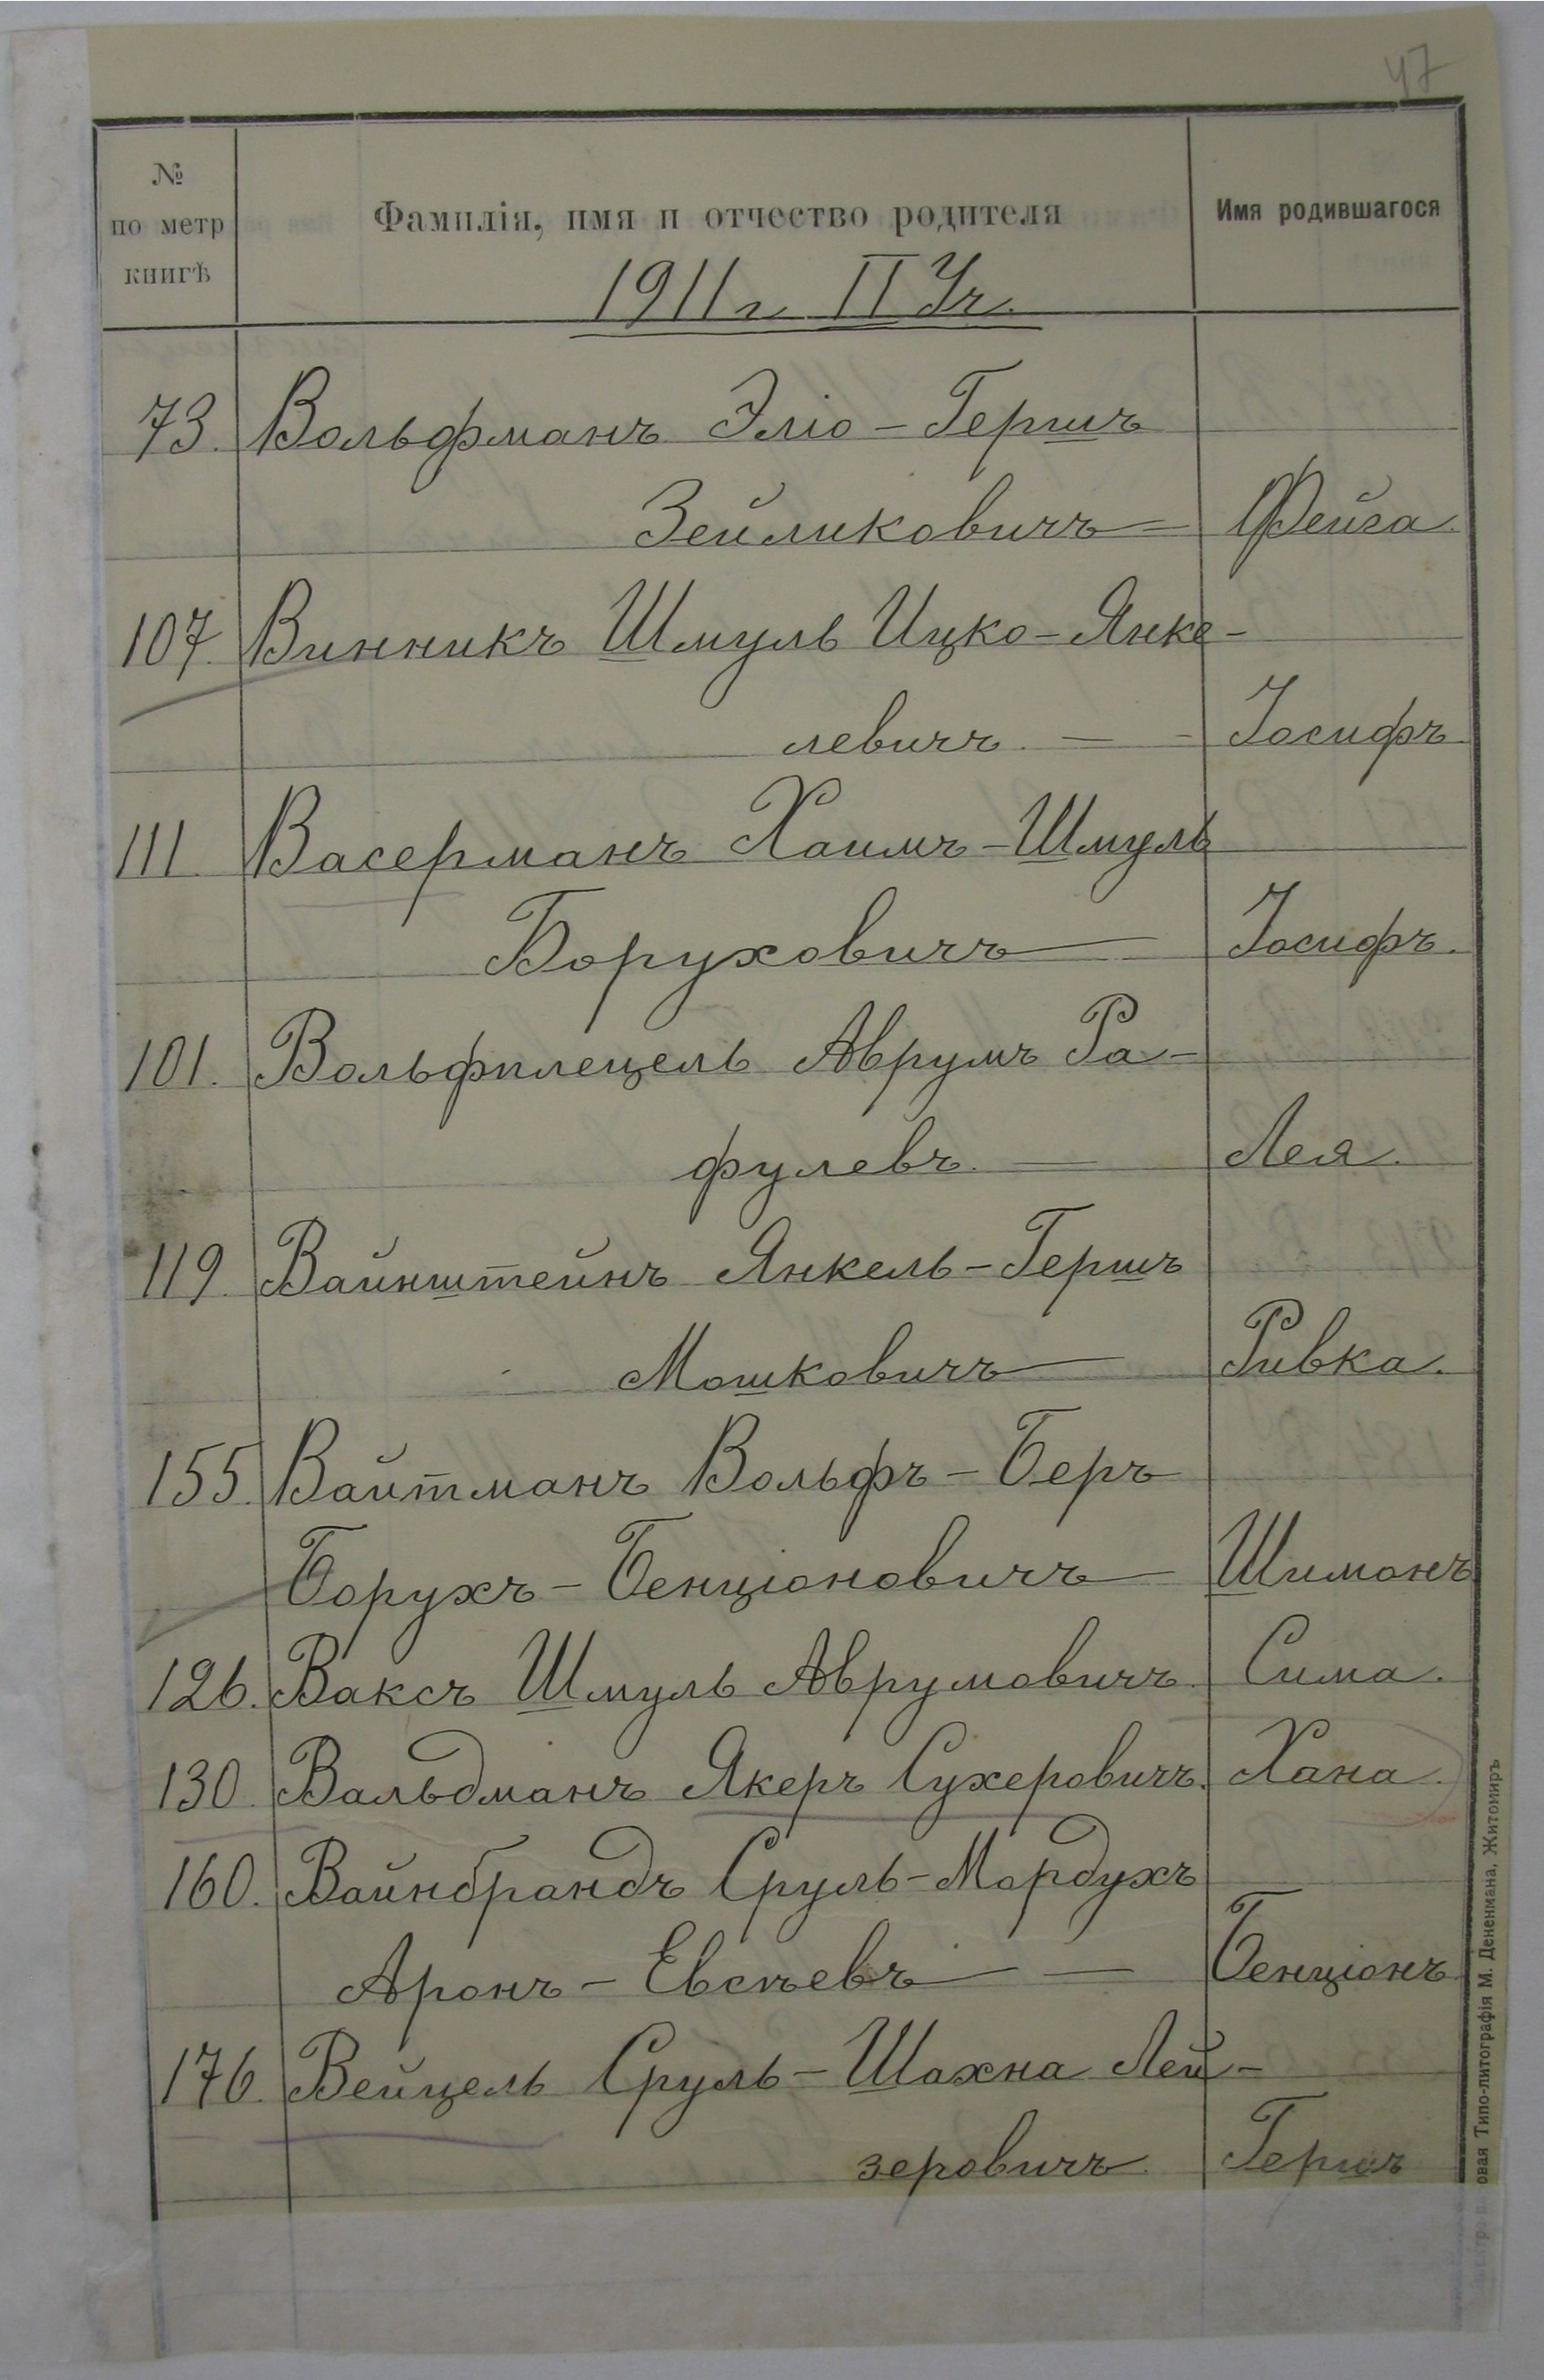 47
№
по метр
книгѣ
Фамилія, имя и отчество родителя
Имя родившагося
1911 г. II Уч.
73. Вольфманъ Эліо-Гершъ
Зейликовичъ — Фейга.
107. Винникъ Шмуль Ицко-Янке-
левичъ. — Іосифъ
111 Васерманъ Хаимъ-Шмуль
Боруховичъ — Іосифъ.
101. Вольфплецель Аврумъ Ра-
фулевъ. — Лея.
119. Вайнштейнъ Янкель-Гершъ
Мошковичъ — Ривка.
155. Вайтманъ Вольфъ-Беръ
Борухъ-Бенціоновичъ — Шимонъ
126. Ваксъ Шмуль Аврумовичъ. Сима.
130. Вальдманъ Якеръ Сухеровичъ. Хана.
160. Вайнбрандъ Сруль-Мордухъ
Аронъ-Евсѣевъ — Бенціонъ
176. Вейцель Сруль-Шахна Лей-
зеровичъ. Гершъ
овая Типо-литографія М. Дененмана, Житомиръ